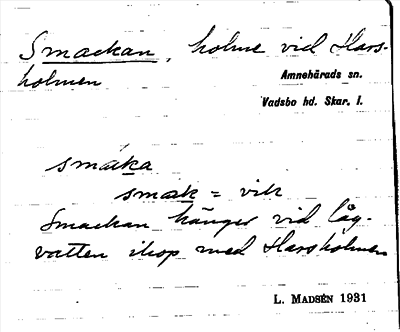 Smackan, holme vid Hars-
holmen
Amnehärads sn.
Vadsbo hd. Skar. l.
smaka
smak = vik
Smackan hänger vid låg-
vatten ihop med Harsholmen
L. MADSÉN 1931